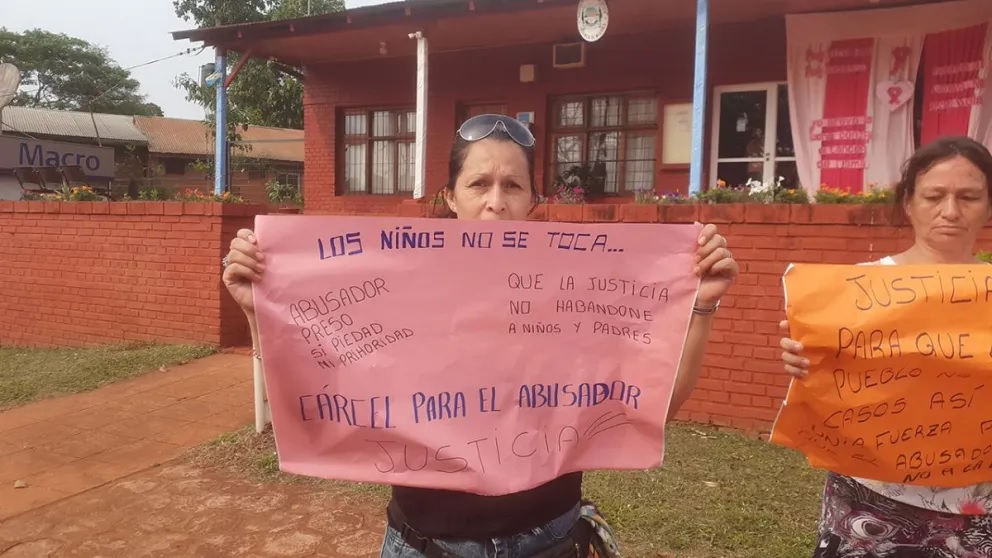 Macro
LOS NIÑOS NO SE TOCA...
ABUSADOR
PRESO
SI PIEDAD
NI PRIHORIDAD
QUE LA JUSTICIA
NO HABANDONE
A NIÑOS Y PADRES
CÁRCEL PARA EL ABUSADOR
JUSTICIA
JUSTICIA
PARA QUE
PUEBLO NO
CASOS ASÍ
FUERZA
ABUSADO
NO